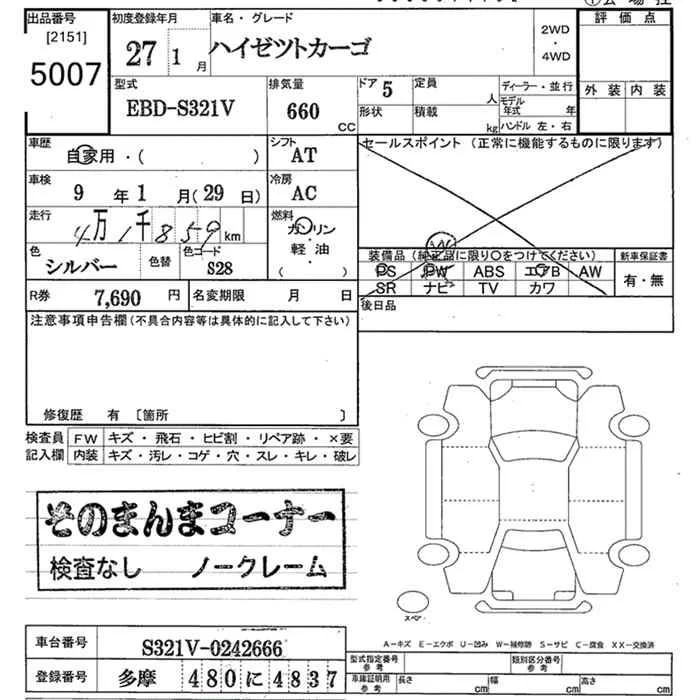 出品番号
[2151]
5007
初度登録年月
27 1 月
車名・グレード
ハイゼツトカーゴ
2WD
・
4WD
評価点
外装 内装
型式
EBD-S321V
排気量
660
CC
ドア 5
形状
定員
人
積載
kg
ディーラー・並行
モデル年式 年
ハンドル 左・右
車歴
自家用・( )
シフト
AT
セールスポイント (正常に機能するものに限ります)
車検
9 年 1 月(29 日)
冷房
AC
走行
4万1千859 km
燃料
ガソリン
・
軽油
( )
色
シルバー
色替
色コード
S28
装備品 (純正品に限り○をつけてください)
PS PW ABS エアB AW
SR ナビ TV カワ
新車保証書
有・無
R券 7,690 円
名変期限 月 日
後日品
注意事項申告欄 (不具合内容等は具体的に記入して下さい)
修復歴 有 〔箇所 〕
検査員記入欄
FW キズ・飛石・ヒビ割・リペア跡・×要
内装 キズ・汚レ・コゲ・穴・スレ・キレ・破レ
そのまんまコーナー
検査なし ノークレーム
スペア
A－キズ E－エクボ U－凹み W－補修跡 S－サビ C－腐食 XX－交換済
車台番号 S321V-0242666
登録番号 多摩 480 に 4837
型式指定番号 参考
類別区分番号 参考
車庫証明用 参考
長さ cm
幅 cm
高さ cm